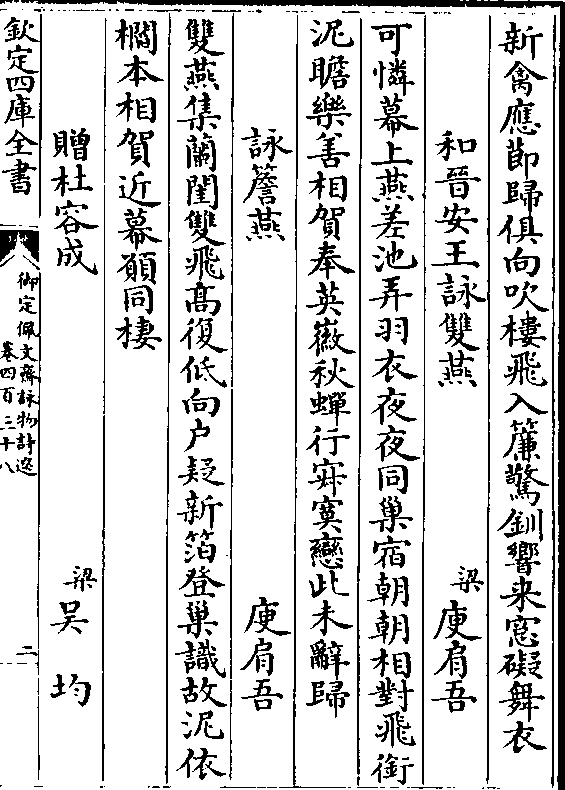 新禽應節歸俱向吹樓飛入簾驚釧響来窓礙舞衣
和晉安王詠雙燕
梁
庾肩吾
可憐幕上燕差池弄羽衣夜夜同巢宿朝朝相對飛銜
泥瞻樂善相賀奉英徽秋蟬行寂寞戀此未辭歸
詠簷燕
庾肩吾
雙燕集蘭閨雙飛髙復低向户疑新箔登巢識故泥依
櫩本相賀近幕願同棲
贈杜容成
梁
吴均
欽定四庫全書
御定佩文齋詠物詩選
卷四百三十八
二